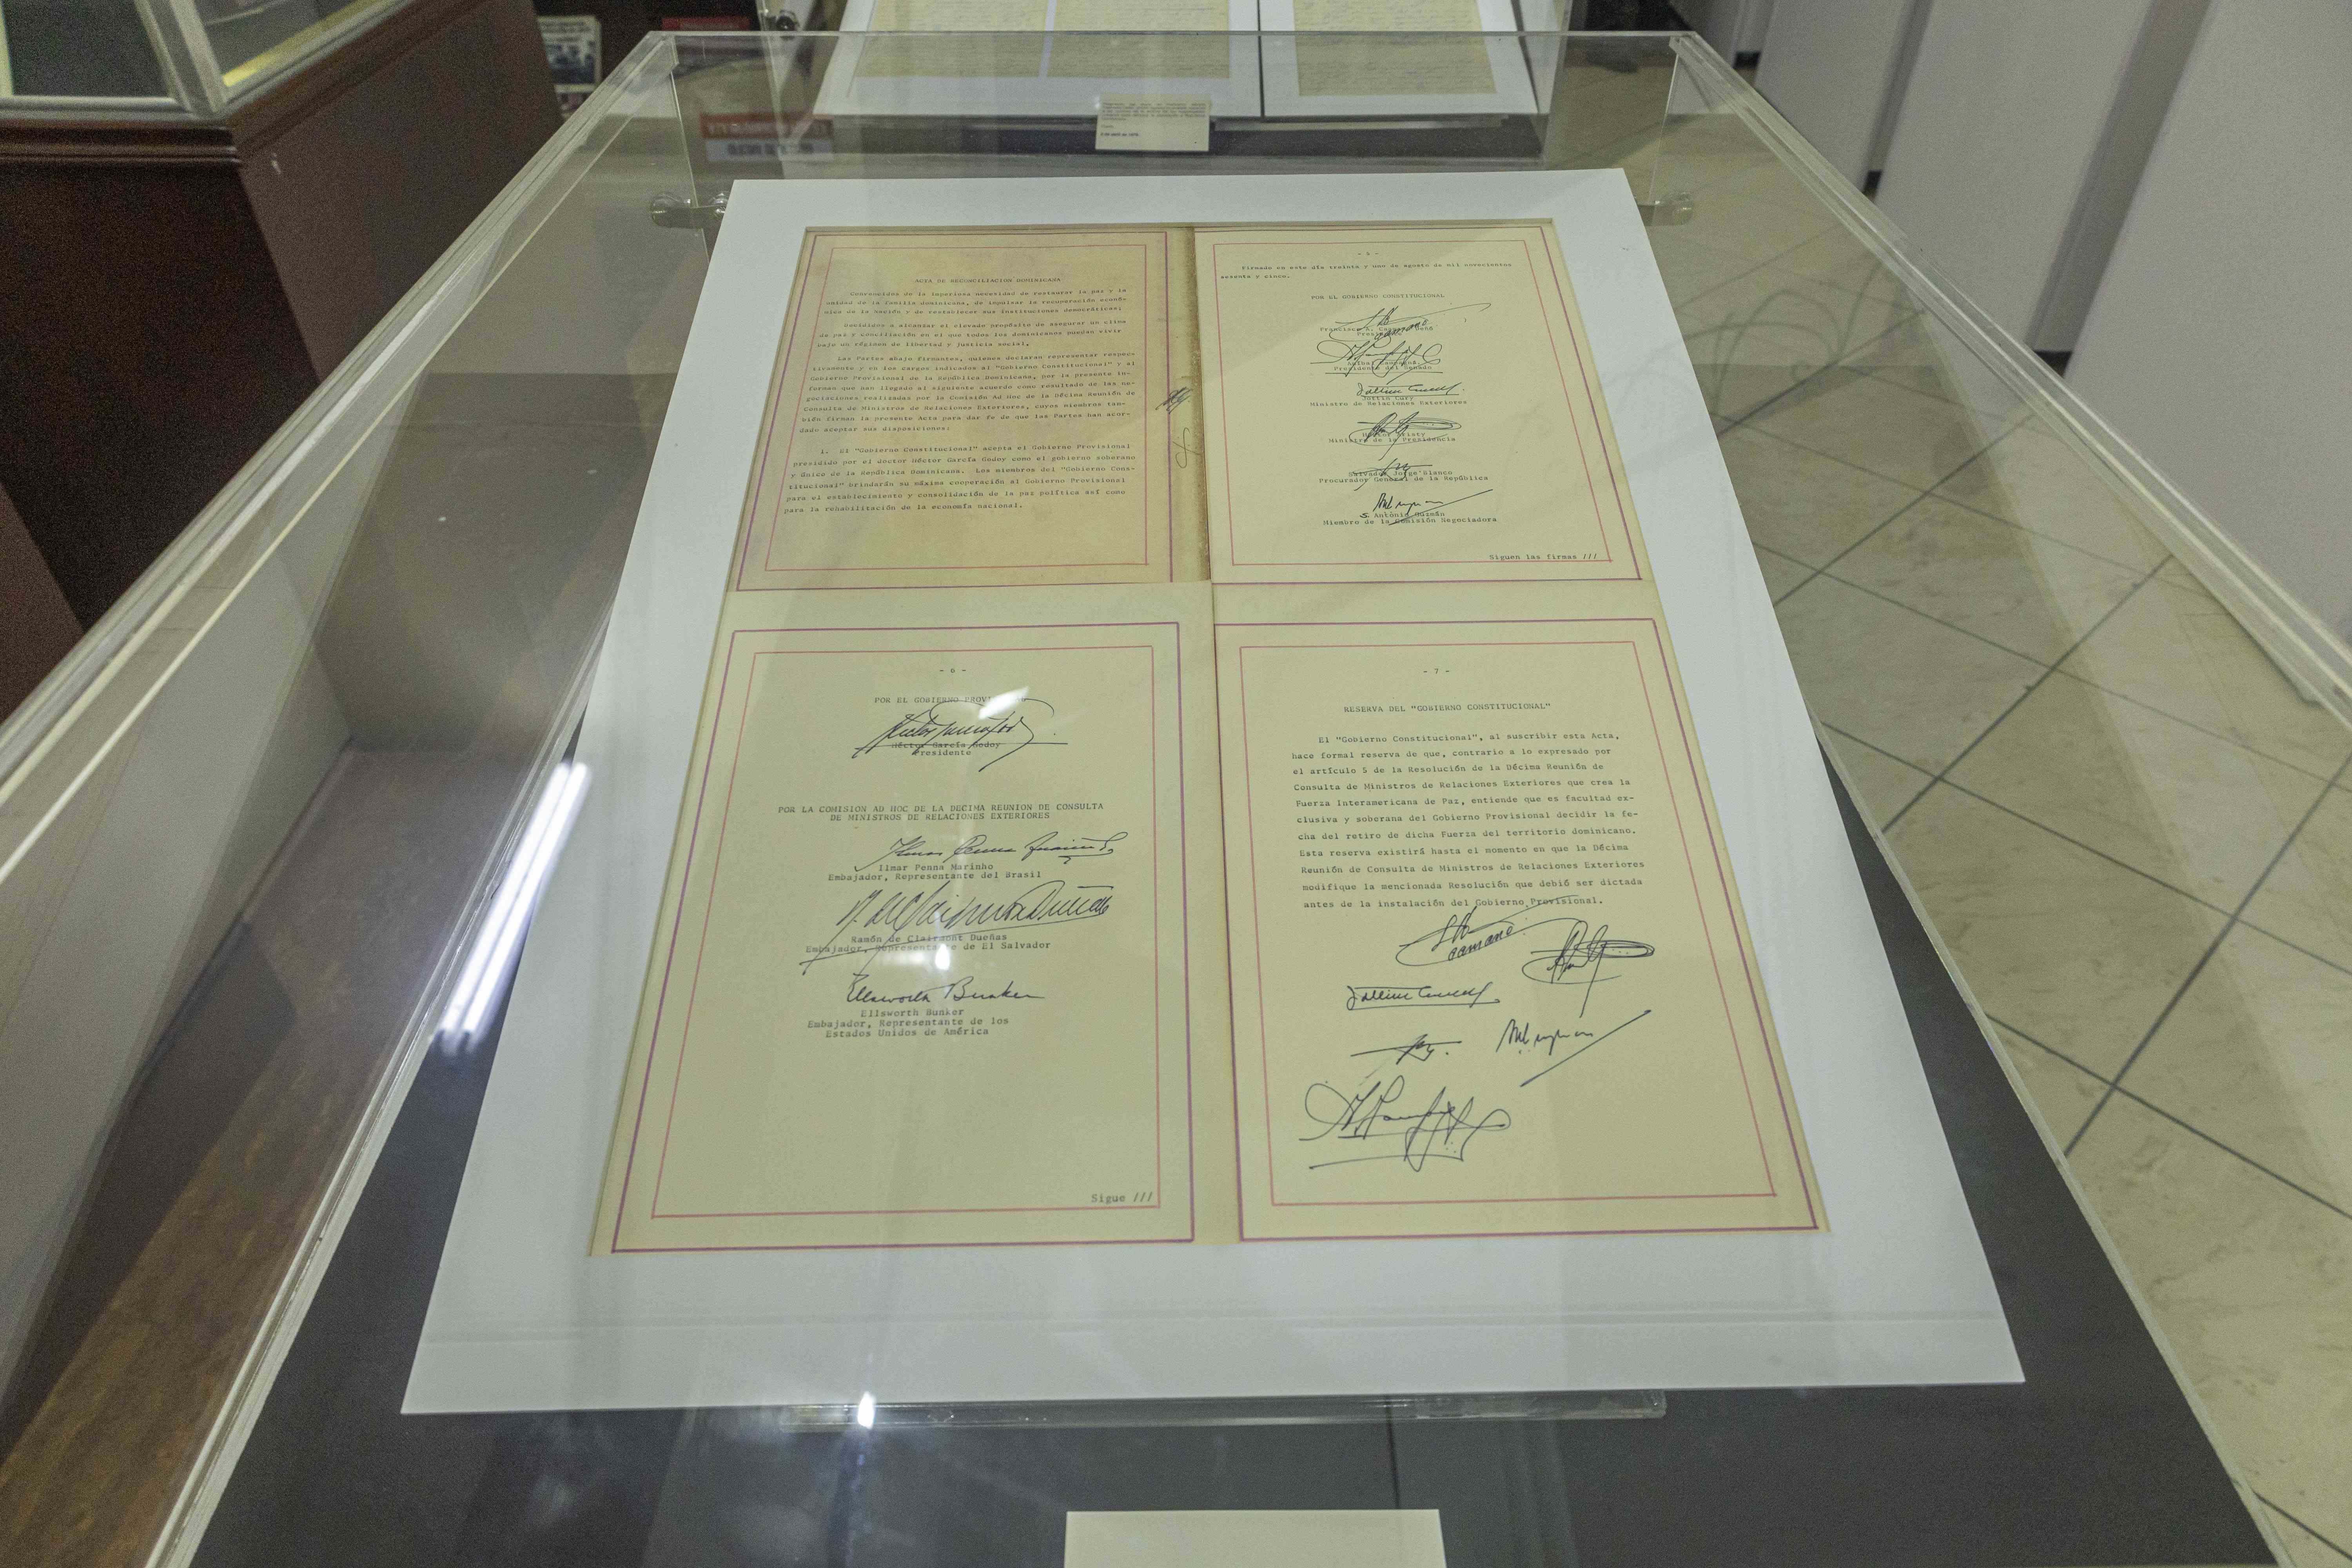 ACTA DE RECONCILIACION DOMINICANA
Convencidos de la imperiosa necesidad de restaurar la paz y la
unidad de la familia dominicana, de impulsar la recuperación econó-
mica de la Nación y de restablecer sus instituciones democráticas;
Decididos a alcanzar el elevado propósito de asegurar un clima
de paz y conciliación en el que todos los dominicanos puedan vivir
bajo un régimen de libertad y justicia social,
Las Partes abajo firmantes, quienes declaran representar respec-
tivamente y en los cargos indicados al "Gobierno Constitucional" y al
Gobierno Provisional de la República Dominicana, por la presente in-
forman que han llegado al siguiente acuerdo como resultado de las ne-
gociaciones realizadas por la Comisión Ad Hoc de la Décima Reunión de
Consulta de Ministros de Relaciones Exteriores, cuyos miembros tam-
bién firman la presente Acta para dar fe de que las Partes han acor-
dado aceptar sus disposiciones:
1. El "Gobierno Constitucional" acepta el Gobierno Provisional
presidido por el doctor Héctor García Godoy como el gobierno soberano
y único de la República Dominicana. Los miembros del "Gobierno Cons-
titucional" brindarán su máxima cooperación al Gobierno Provisional
para el establecimiento y consolidación de la paz política así como
para la rehabilitación de la economía nacional.
- 5 -
Firmado en este día treinta y uno de agosto de mil novecientos
sesenta y cinco.
POR EL GOBIERNO CONSTITUCIONAL
Francisco A. Caamaño Deñó
Presidente
Presidente del Senado
Jottin Cury
Ministro de Relaciones Exteriores
Héctor Aristy
Ministro de la Presidencia
Salvador Jorge Blanco
Procurador General de la República
S. Antonio Guzmán
Miembro de la Comisión Negociadora
Siguen las firmas ///
- 6 -
POR EL GOBIERNO PROVISIONAL
Héctor García Godoy
Presidente
POR LA COMISION AD HOC DE LA DECIMA REUNION DE CONSULTA
DE MINISTROS DE RELACIONES EXTERIORES
Ilmar Penna Marinho
Embajador, Representante del Brasil
Ramón de Clairmont Dueñas
Embajador, Representante de El Salvador
Ellsworth Bunker
Ellsworth Bunker
Embajador, Representante de los
Estados Unidos de América
Sigue ///
- 7 -
RESERVA DEL "GOBIERNO CONSTITUCIONAL"
El "Gobierno Constitucional", al suscribir esta Acta,
hace formal reserva de que, contrario a lo expresado por
el artículo 5 de la Resolución de la Décima Reunión de
Consulta de Ministros de Relaciones Exteriores que crea la
Fuerza Interamericana de Paz, entiende que es facultad ex-
clusiva y soberana del Gobierno Provisional decidir la fe-
cha del retiro de dicha Fuerza del territorio dominicano.
Esta reserva existirá hasta el momento en que la Décima
Reunión de Consulta de Ministros de Relaciones Exteriores
modifique la mencionada Resolución que debió ser dictada
antes de la instalación del Gobierno Provisional.